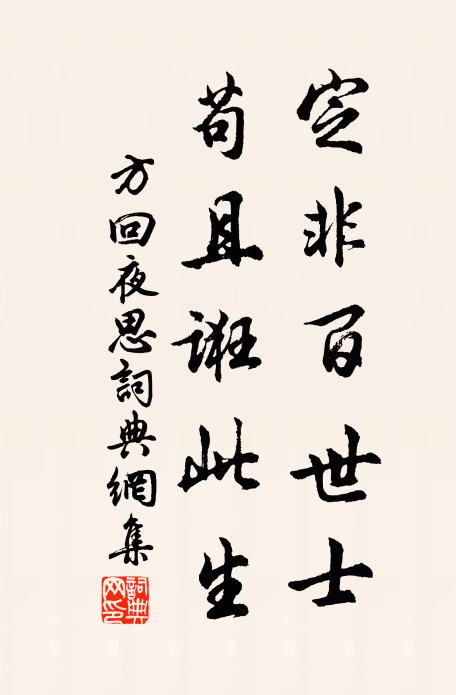 定非百世士
苟且誑此生
方回夜思詞典網集
詞典网印